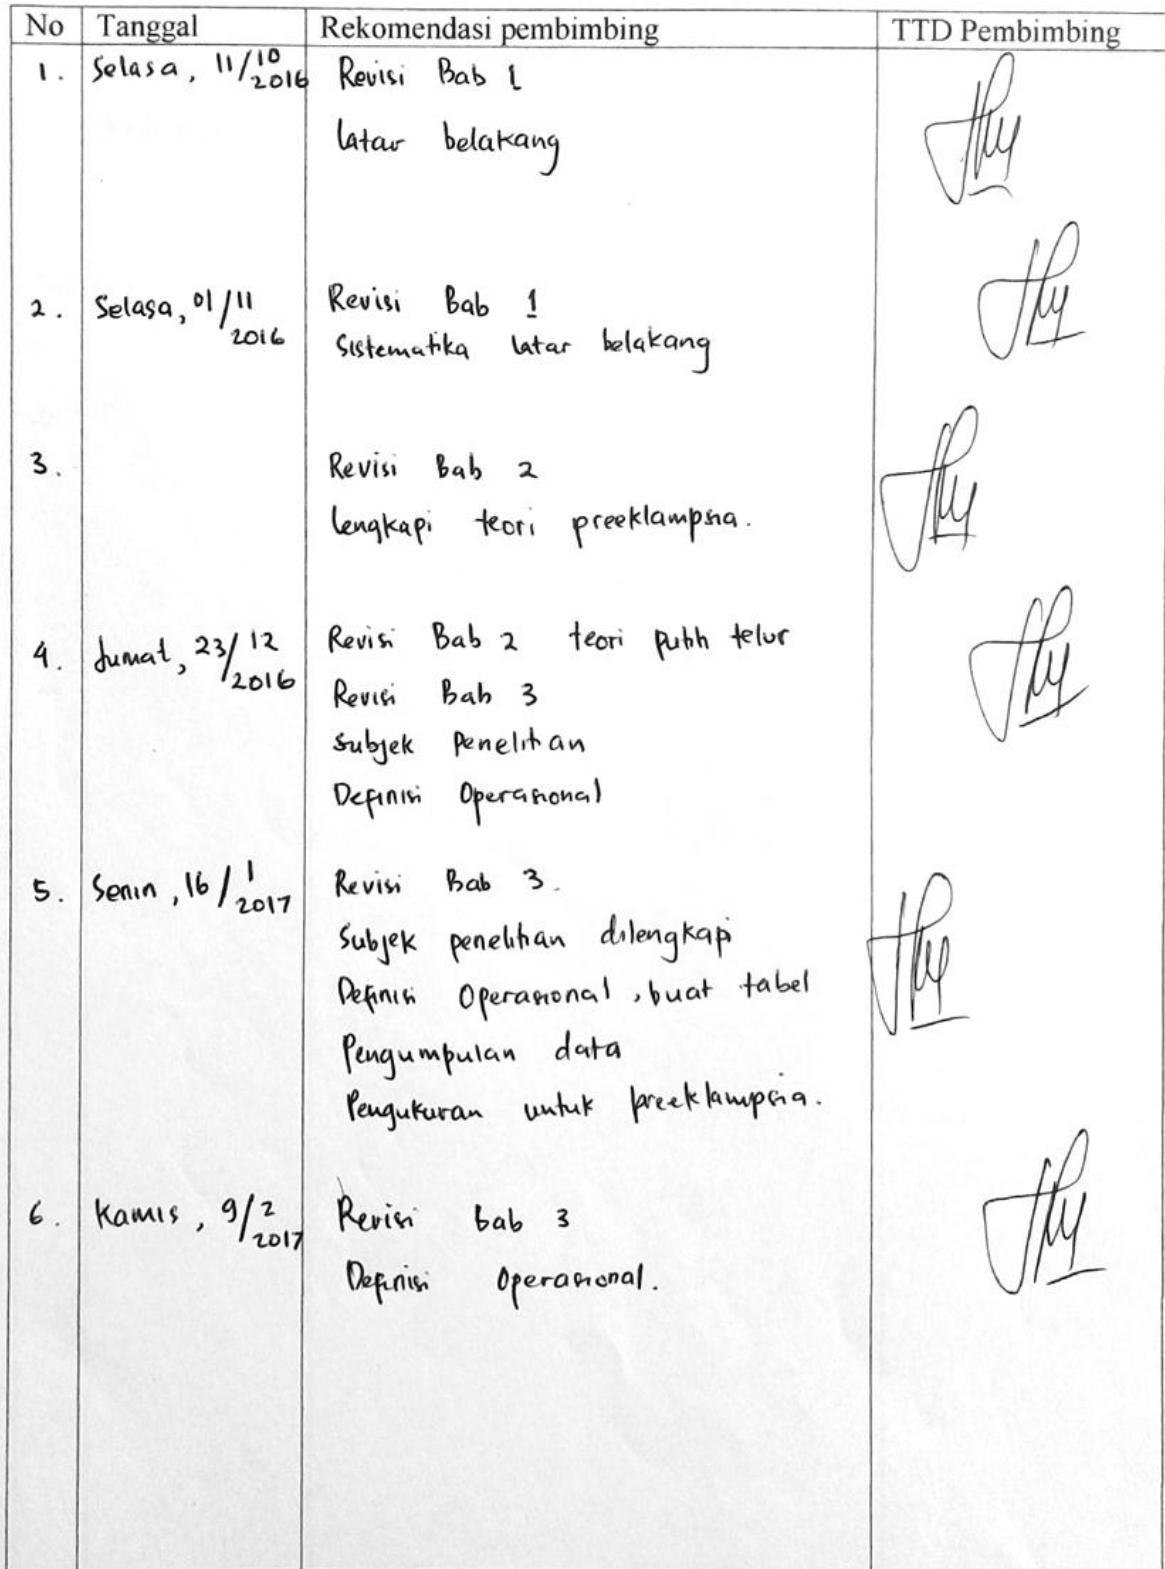 No Tanggal Rekomendasi pembimbing TTD Pembimbing
1. Selasa, 11/10 2016 Revisi Bab 1
latar belakang
2. Selasa, 01/11 2016 Revisi Bab 1
Sistematika latar belakang
3. Revisi Bab 2
lengkapi teori preeklampsia.
4. Jumat, 23/12 2016 Revisi Bab 2 teori putih telur
Revisi Bab 3
Subjek Penelitian
Definisi Operasional
5. Senin, 16/1 2017 Revisi Bab 3.
Subjek penelitian dilengkapi
Definisi Operasional, buat tabel
Pengumpulan data
Pengukuran untuk preeklampsia.
6. Kamis, 9/2 2017 Revisi bab 3
Definisi Operasional.